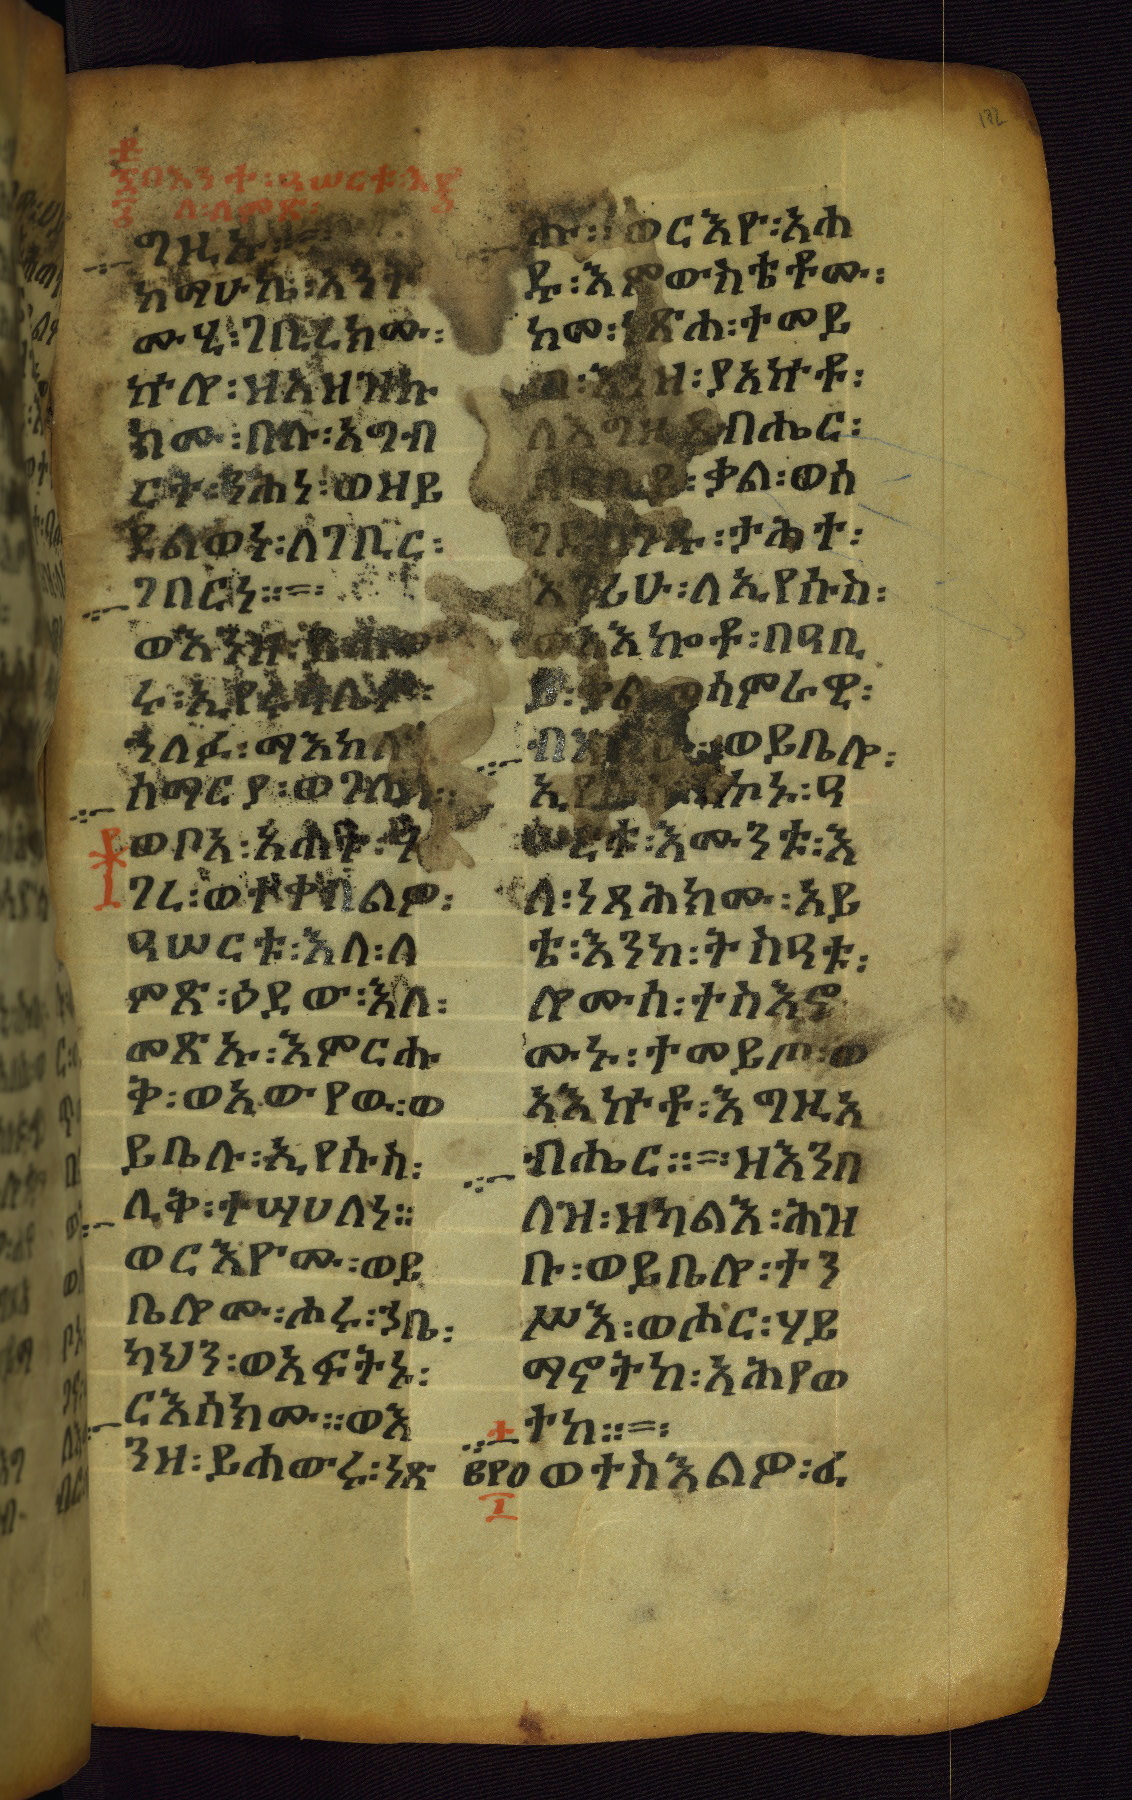 በእንተ፡ዓሠርቱ፡እ
ለ፡ለምጽ፡
ግዚኡ።
ከማሁኬ፡አንት
ሙሂ፡ገቢረክሙ፡
ኵሎ፡ዘአዘዝኩ
ክሙ፡በሉ፡አግብ
ርት፡ንሕነ፡ወዘይ
ደልወነ፡ለገቢር፡
ገበርነ።=፡
ወእንዘ፡የሐው
ር፡ኢየሩሳሌም፡
ኀለፈ፡ማእከለ
ሰማርያ፡ወገሊላ፡
ወቦአ፡አሐተ፡ሀ
ገረ፡ወተቀበልዎ፡
ዓሠርቱ፡እለ፡ለ
ምጽ፡ዕደው፡እለ፡
መጽኡ፡እምርሑ
ቅ፡ወአውየዉ፡ወ
ይቤሉ፡ኢየሱስ፡
ሊቅ፡ተሣሀለነ።
ወርእዮሙ፡ወይ
ቤሎሙ፡ሑሩ፡ኀቤ፡
ካህን፡ወአፍትኑ፡
ርእሰክሙ።ወእ
ንዘ፡ይሐውሩ፡ነጽ
ሑ።ወርእዮ፡አሐ
ዱ፡እምውስቴቶሙ፡
ከመ፡ነጽሐ፡ተመይ
ጠ፡እንዘ፡ያአኵቶ፡
ለእግዚአብሔር፡
በዓቢይ፡ቃል፡ወሰ
ገደ፡በገጹ፡ታሕተ፡
እገሪሁ፡ለኢየሱስ፡
ወአእኰቶ፡በዓቢ
ይ፡ቃል፡ወሳምራዊ፡
ብእሲሁ፡ወይቤሎ፡
ኢየሱስ፡አኮኑ፡ዓ
ሠርቱ፡እሙንቱ፡እ
ለ፡ነጻሕክሙ፡አይ
ቴ፡እንከ፡ትስዓቱ፡
ሎሙሰ፡ተስእኖ
ሙኑ፡ተመይጦ፡ወ
አእኵቶ፡እግዚአ
ብሔር።=፡ዘእንበ
ለዝ፡ዘካልእ፡ሕዝ
ቡ፡ወይቤሎ፡ተን
ሥእ፡ወሑር፡ሃይ
ማኖትከ፡አሕየወ
ተከ።=፡
ወተስእልዎ፡ፈ